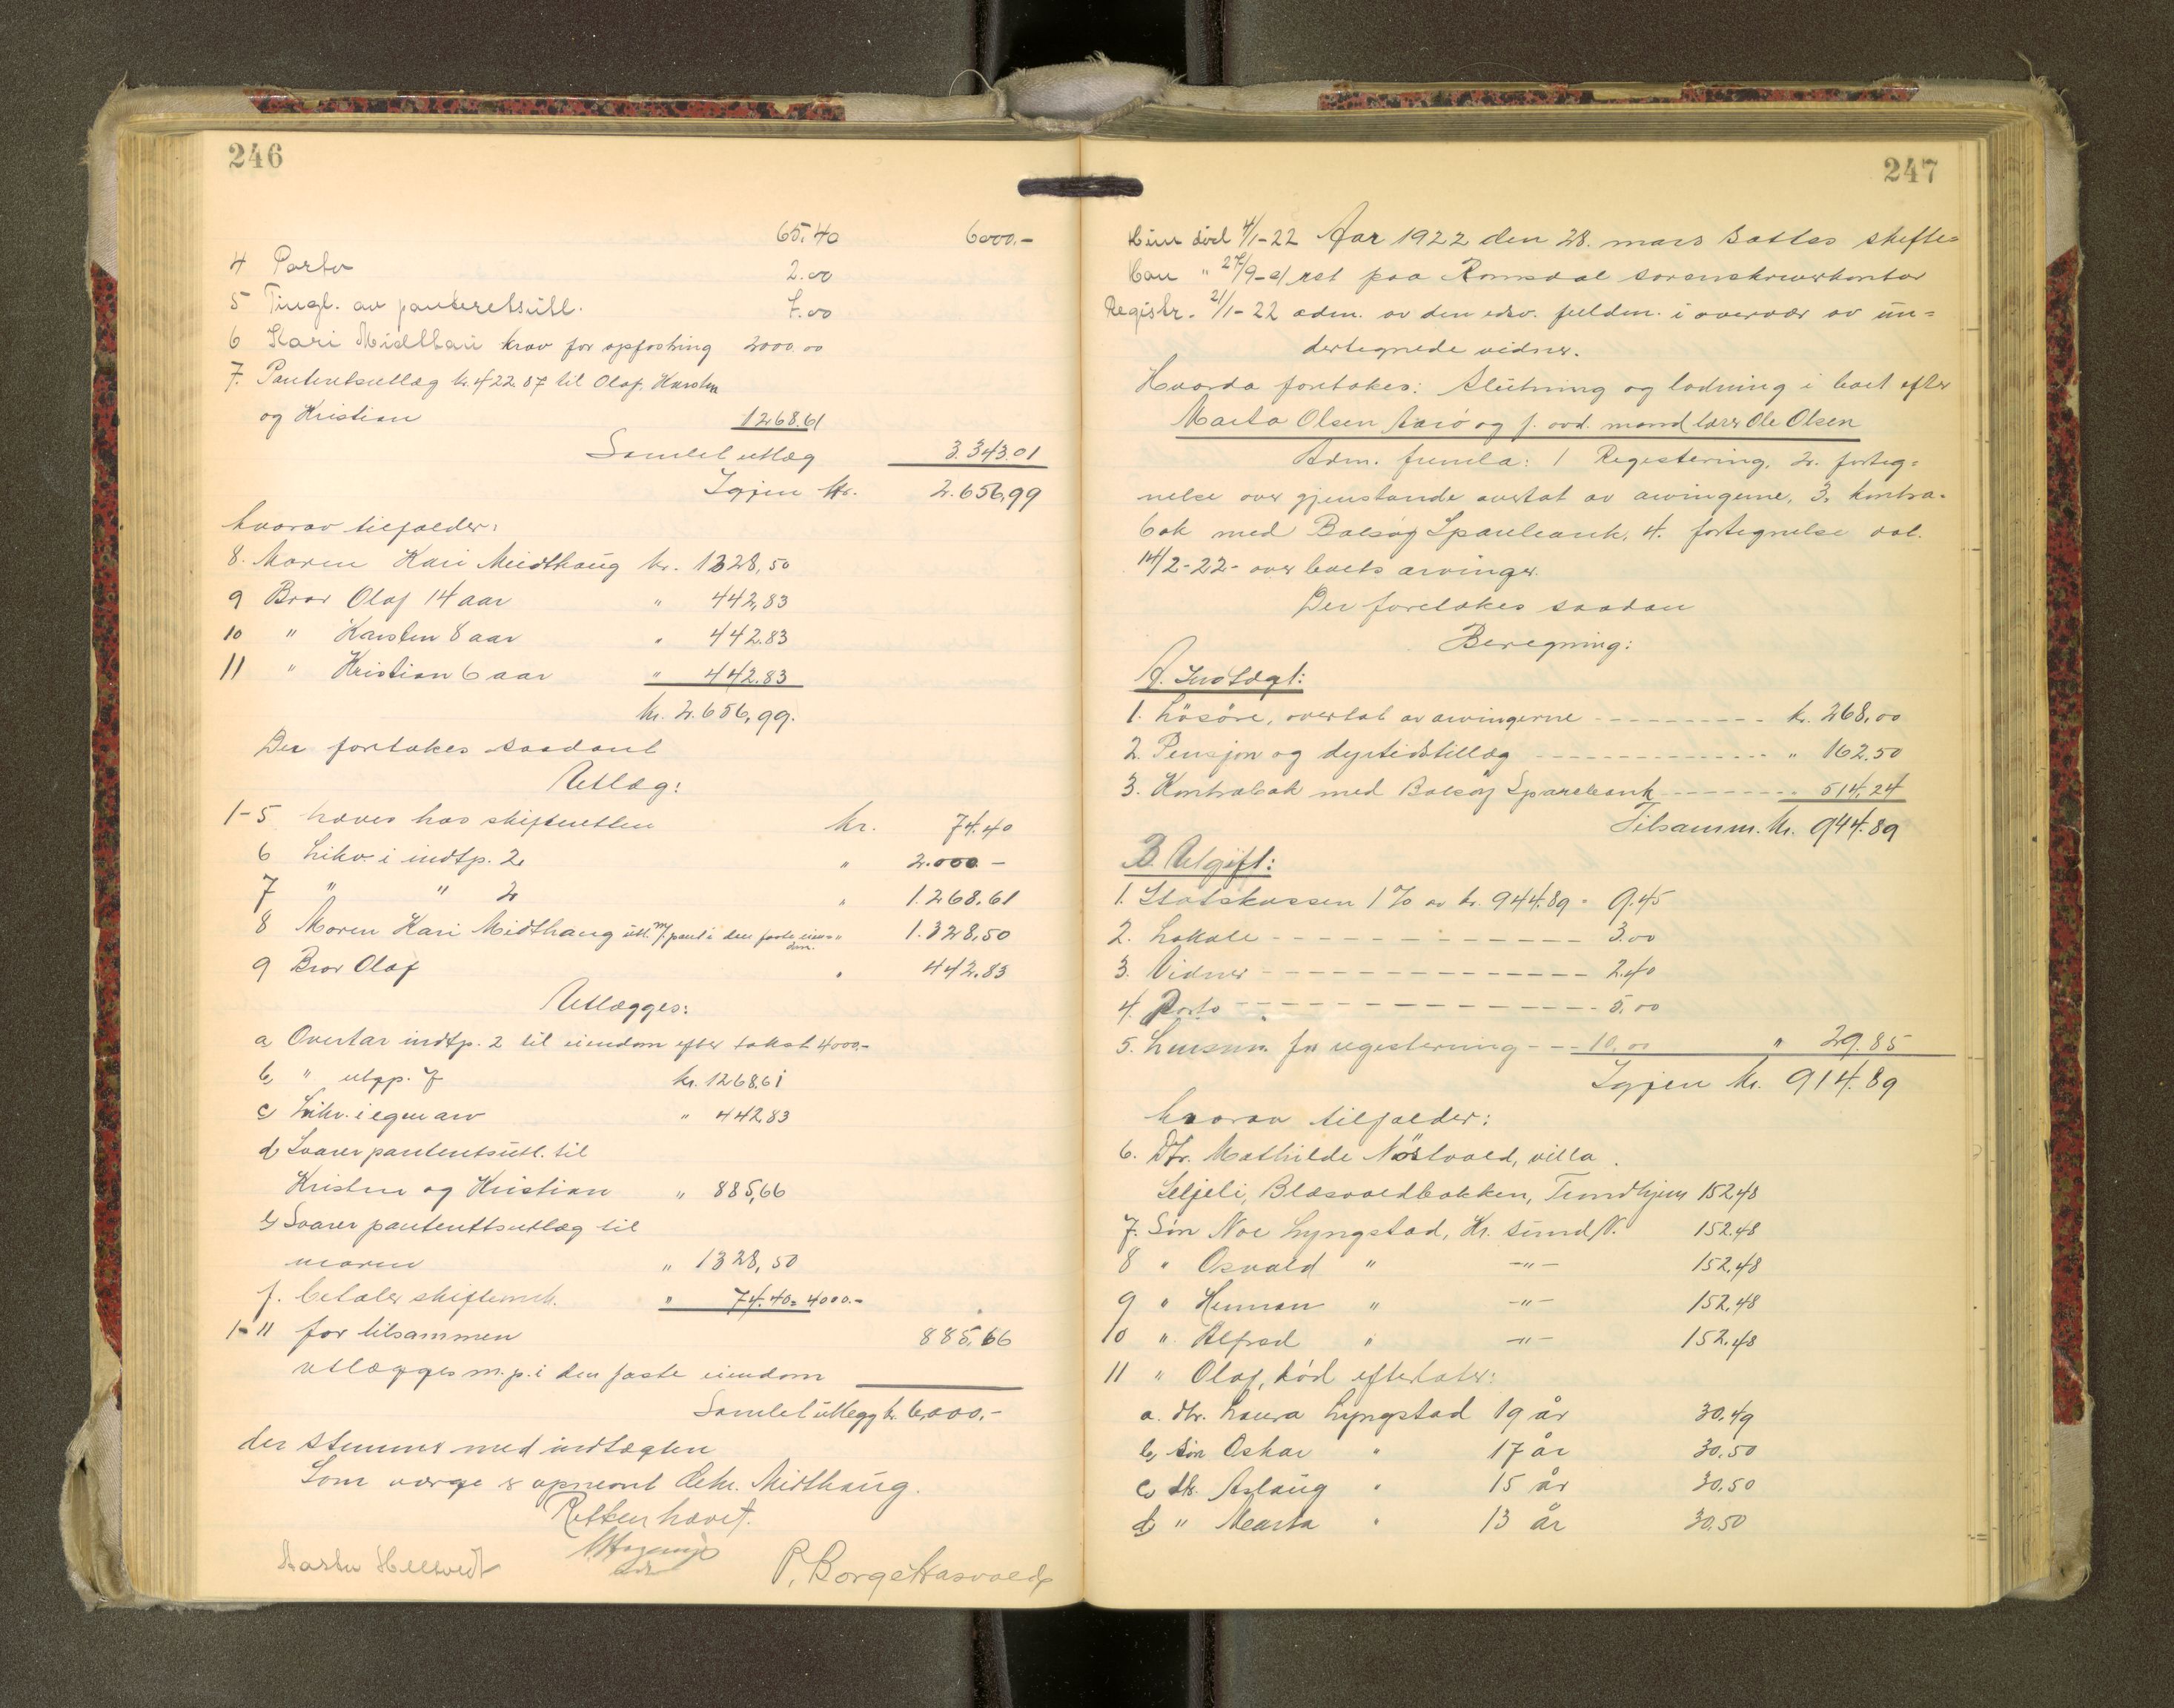 246
65.40 6000.-
4 Porto 2.00
5 Tingl. av panteretsutl. 7.00
6 Kari Midthau krav for opfostring 2000.00
7. Panteretsutlæg kr. 422.87 til Olaf, Karsten
og Kristian 1268.61
Samlet utlæg 3.343.01
Igjen kr. 2.656,99
hvorav tilfalder:
8. Moren Kari Meidthaug kr. 1328,50
9 Bror Olaf 14 aar " 442,83
10 " Karsten 8 aar " 442.83
11 " Kristian 6 aar " 442.83
kr. 2.656,99.
Der foretakes saadant
Utlæg:
1-5 haves hos skifteretten kr. 74.40
6 Likv. i indtp. 2 " 2.000 -
7 " " 2 " 1.268.61
8 Moren Kari Midthaug utl. m/ pant i den faste eien- " 1.328,50
dom.
9 Bror Olaf " 442.83
Utlægges:
a Overtar indtp. 2 til eiendom efter takst 4000,-
b, " utgp. 7 kr. 1268,61
c) Likv. i egen arv " 442,83
d, Svarer panteretsutl. til
Kristen og Kristian " 885,66
e, Svarer panterettsutlæg til
moren " 1328,50
f. betaler skifteomk. " 74.40 = 4000.-
1-11 for tilsammen 885,66
utlægges m.p. i den faste eiendom
Samlet utlegg kr. 6,000,-
der stemmer med indtægten
Som værge er opnevnt Midthaug.
Retten hævet.
P. Borge Hasvold
247
Hun død 4/1-22 Aar 1922 den 28. mars sattes skifte=
Han " 27/9- ret paa Romsdal sorenskriverkontor
Registr. 21/1-22 adm. av den edsv. fuldm. i overvær av un=
dertegnede vidner.
Hvorda foretokes: Slutning og lodning i boet efter
Marta Olsen Aarø og f. avd. mand lærer Ole Olsen
Adm. fremla: 1 Registering, 2. forteg=
nelse over gjenstande overtat av arvingerne, 3. kontra-
bok med Bolsøy Sparebank, 4. fortegnelse dat.
14/2-22- over boets arvinger.
Der foretokes saadan
Beregning:
A. Indtægt:
1. Løsøre, overtat av arvingerne - - - kr. 268,00
2. Pensjon og dyrtidstillæg - - - " 162.50
3. Kontrabok med Bolsøy Sparebank - - - 514,24
Tilsamm. kr. 944.89
B. Utgift:
1. Statskassen 1% av kr. 944.89 = 9.45
2. Lokale - - - 3.00
3. Vidner - - - 2.40
4. Porto - - - 5,00
5. Lensm. for registering - - 10,00 " 29.85
Igjen kr. 914.89
hvorav tilfalder:
6. Dtr. Mathilde Nøstvold, villa
Seljeli, Blæsvoldbakken, Trondhjem 152,48
7. Søn Noe Lyngstad, Kr. sund N. 152.48
8 " Osvald " -"- 152,48
9 " Herman " -"- 152,48
10 " Alfred " -"- 152.48
11 " Olaf, død efterlater:
a. dtr. Laura Lyngstad 19 år 30,49
b, søn Oskar " 17 år 30.50
c, dtr. Aslaug " 15 år 30.50
d, " Marta " 13 år 30,50